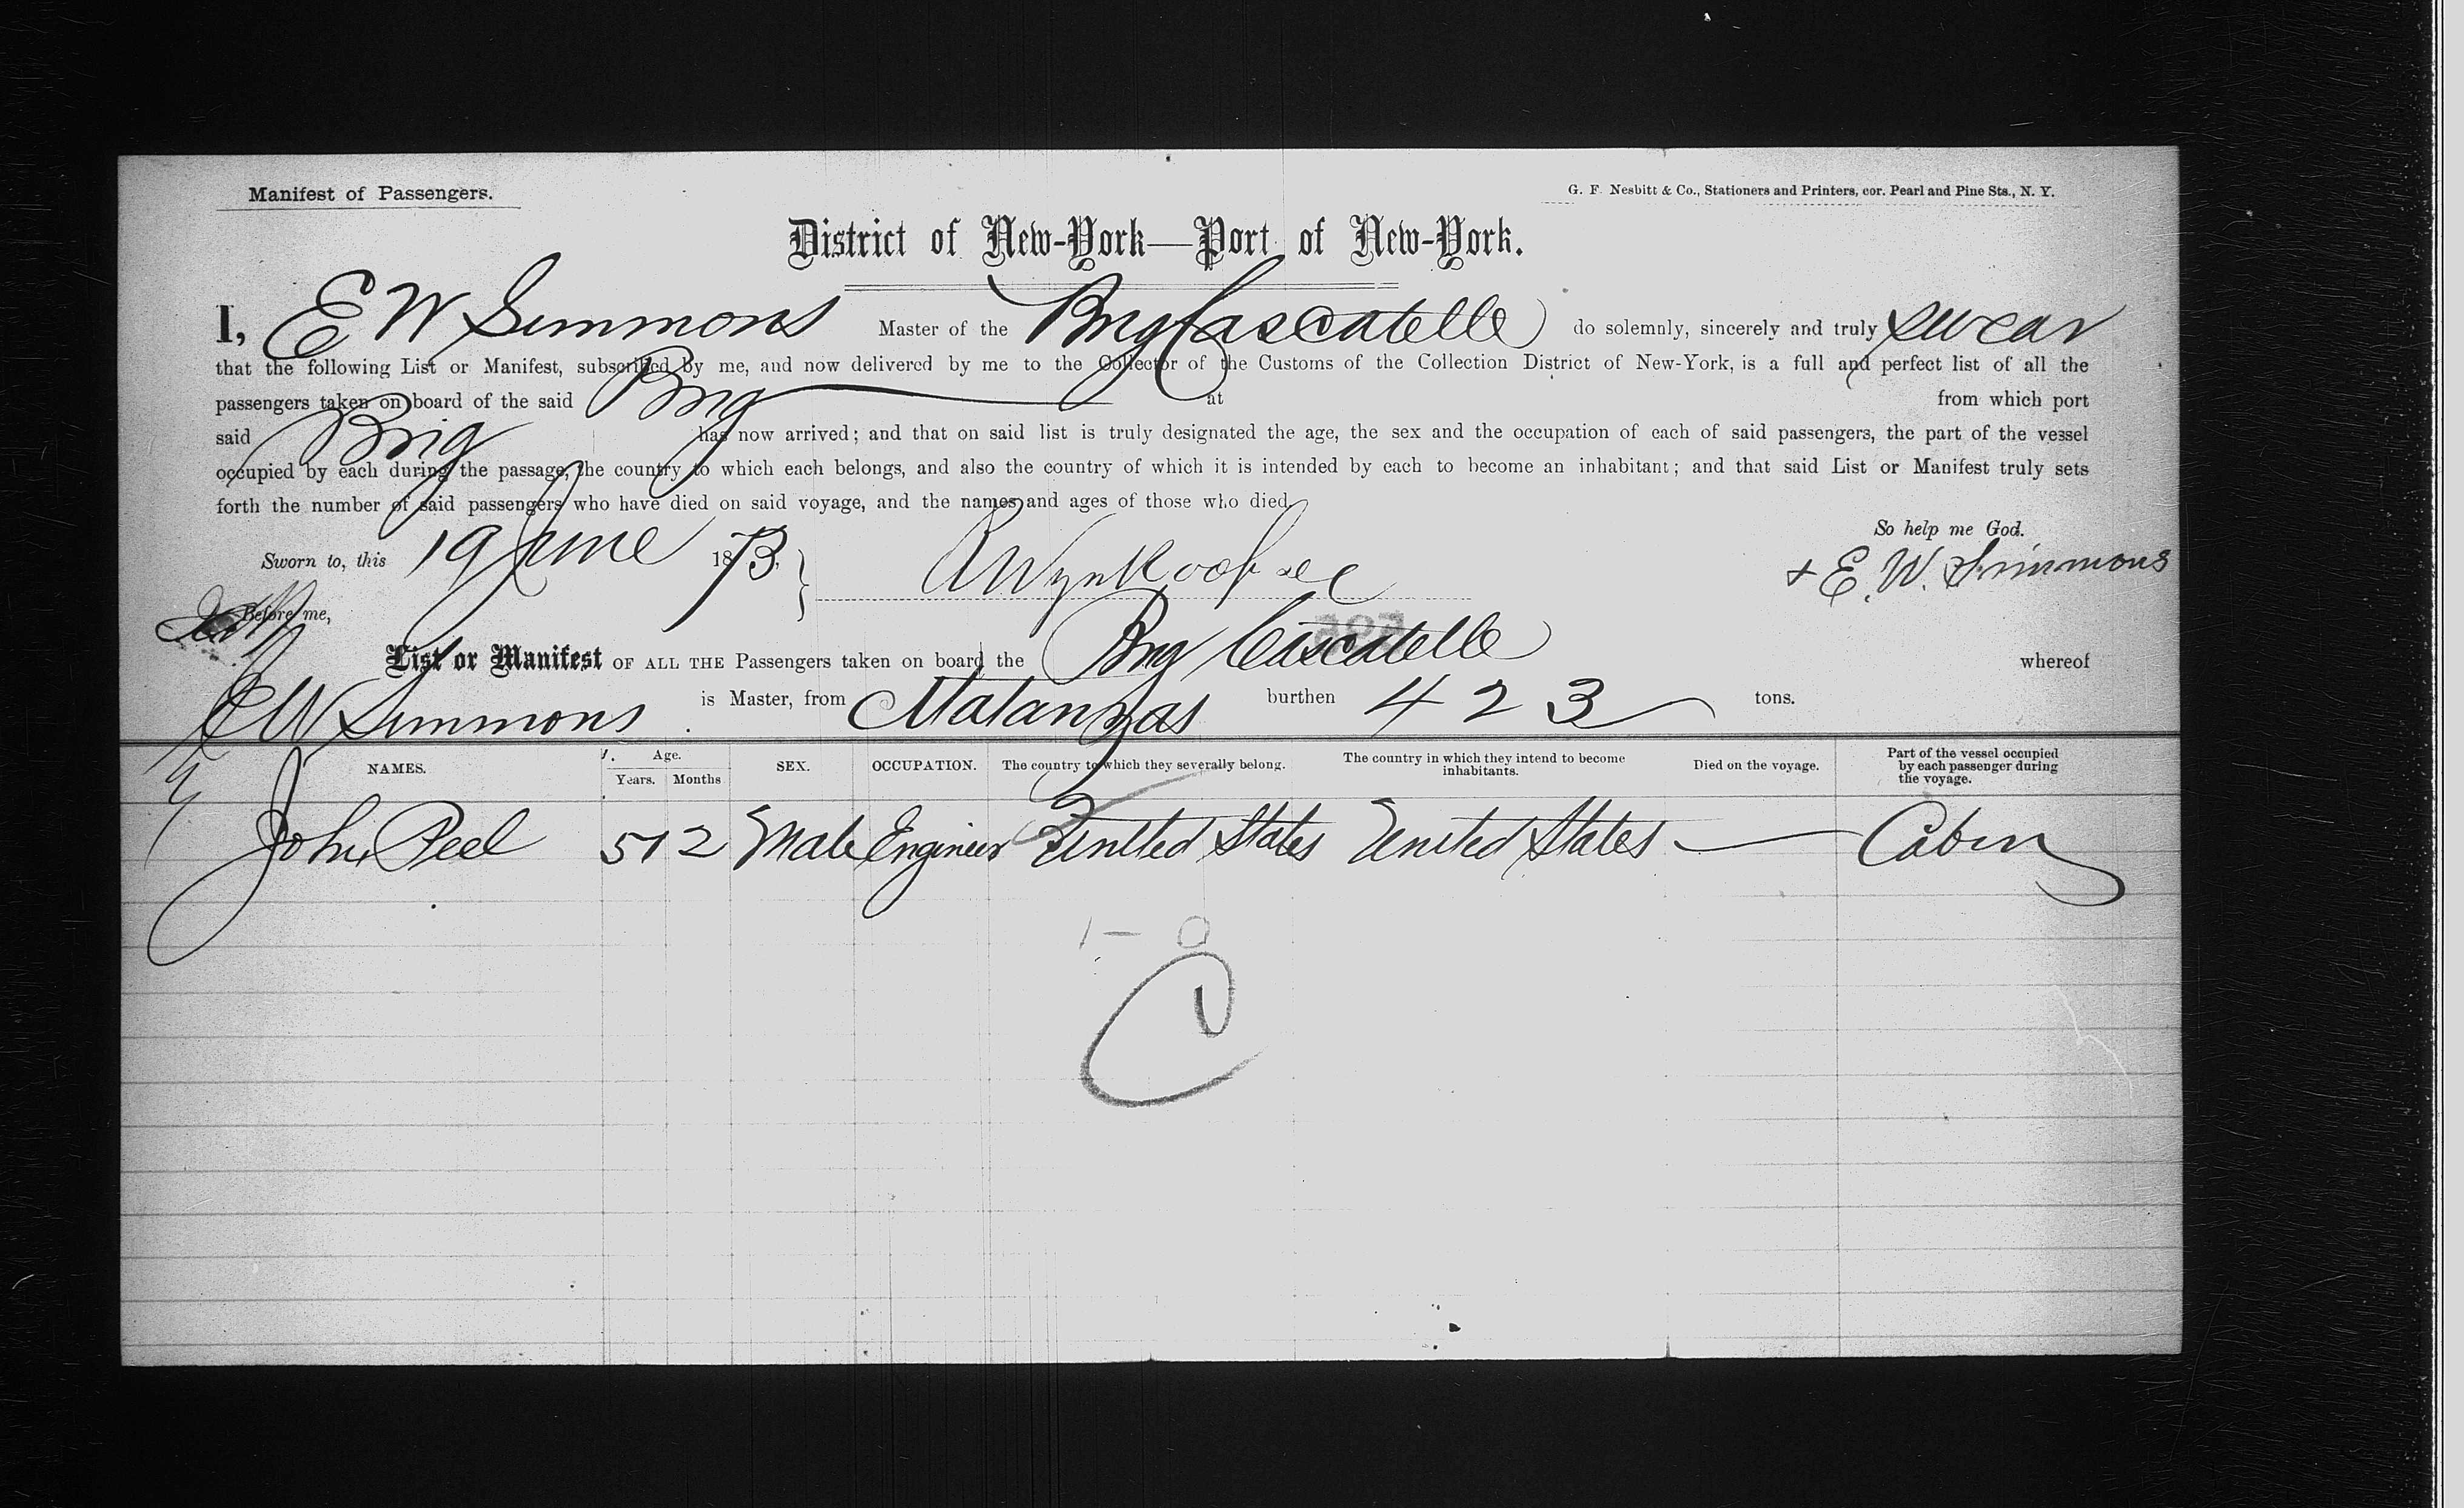 Manifest of Passengers.
G. F. Nesbitt & Co., Stationers and Printers, cor. Pearl and Pine Sts., N. Y.
District of New-York—Port of New-York.
I, E W Simmons Master of the Brig Cascatelle do solemnly, sincerely and truly swear
that the following List or Manifest, subscribed by me, and now delivered by me to the Collector of the Customs of the Collection District of New-York, is a full and perfect list of all the
passengers taken on board of the said Brig at from which port
said Brig has now arrived; and that on said list is truly designated the age, the sex and the occupation of each of said passengers, the part of the vessel
occupied by each during the passage, the country to which each belongs, and also the country of which it is intended by each to become an inhabitant; and that said List or Manifest truly sets
forth the number of said passengers who have died on said voyage, and the names and ages of those who died.
So help me God.
Sworn to, this 19 June 1873, E. W. Simmons
Before me,
List or Manifest OF ALL THE Passengers taken on board the Brig Cascatelle whereof
E W Simmons is Master, from Matanzas burthen 423 tons.
NAMES. Age. Years. Months SEX. OCCUPATION. The country to which they severally belong. The country in which they intend to become inhabitants. Died on the voyage. Part of the vessel occupied by each passenger during the voyage.
John Peel 51 2 Male Engineer United States United States — Cabin
1 — 0